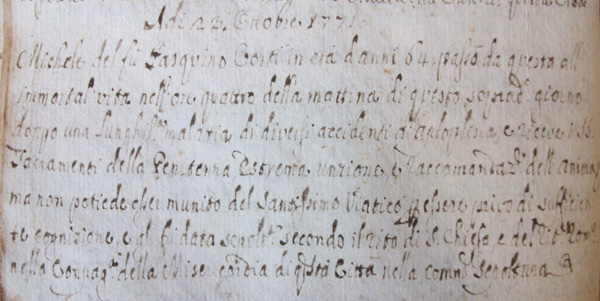 Adi 22 Ottobre 1771
Michele del fù Pasquino Corti in età d'anni 64. passò da questa all'
immortal vita nell'ore quattro della mattina di questo soprad.º giorno
doppo una lungh.ma malatia di diversi accidenti di e ricevè i SS.
Sacramenti della Penitenza Estrema unzione, e Raccomandaz.e dell'anima,
ma non potiede esser munito del Santissimo Viatico p essere privo di sufficien-
te cognizione, e gli fù data sepolt.a secondo il rito di S. Chiesa e del Rom.o
nella Compag.a della Misericordia di q.sta Città nella comm.e